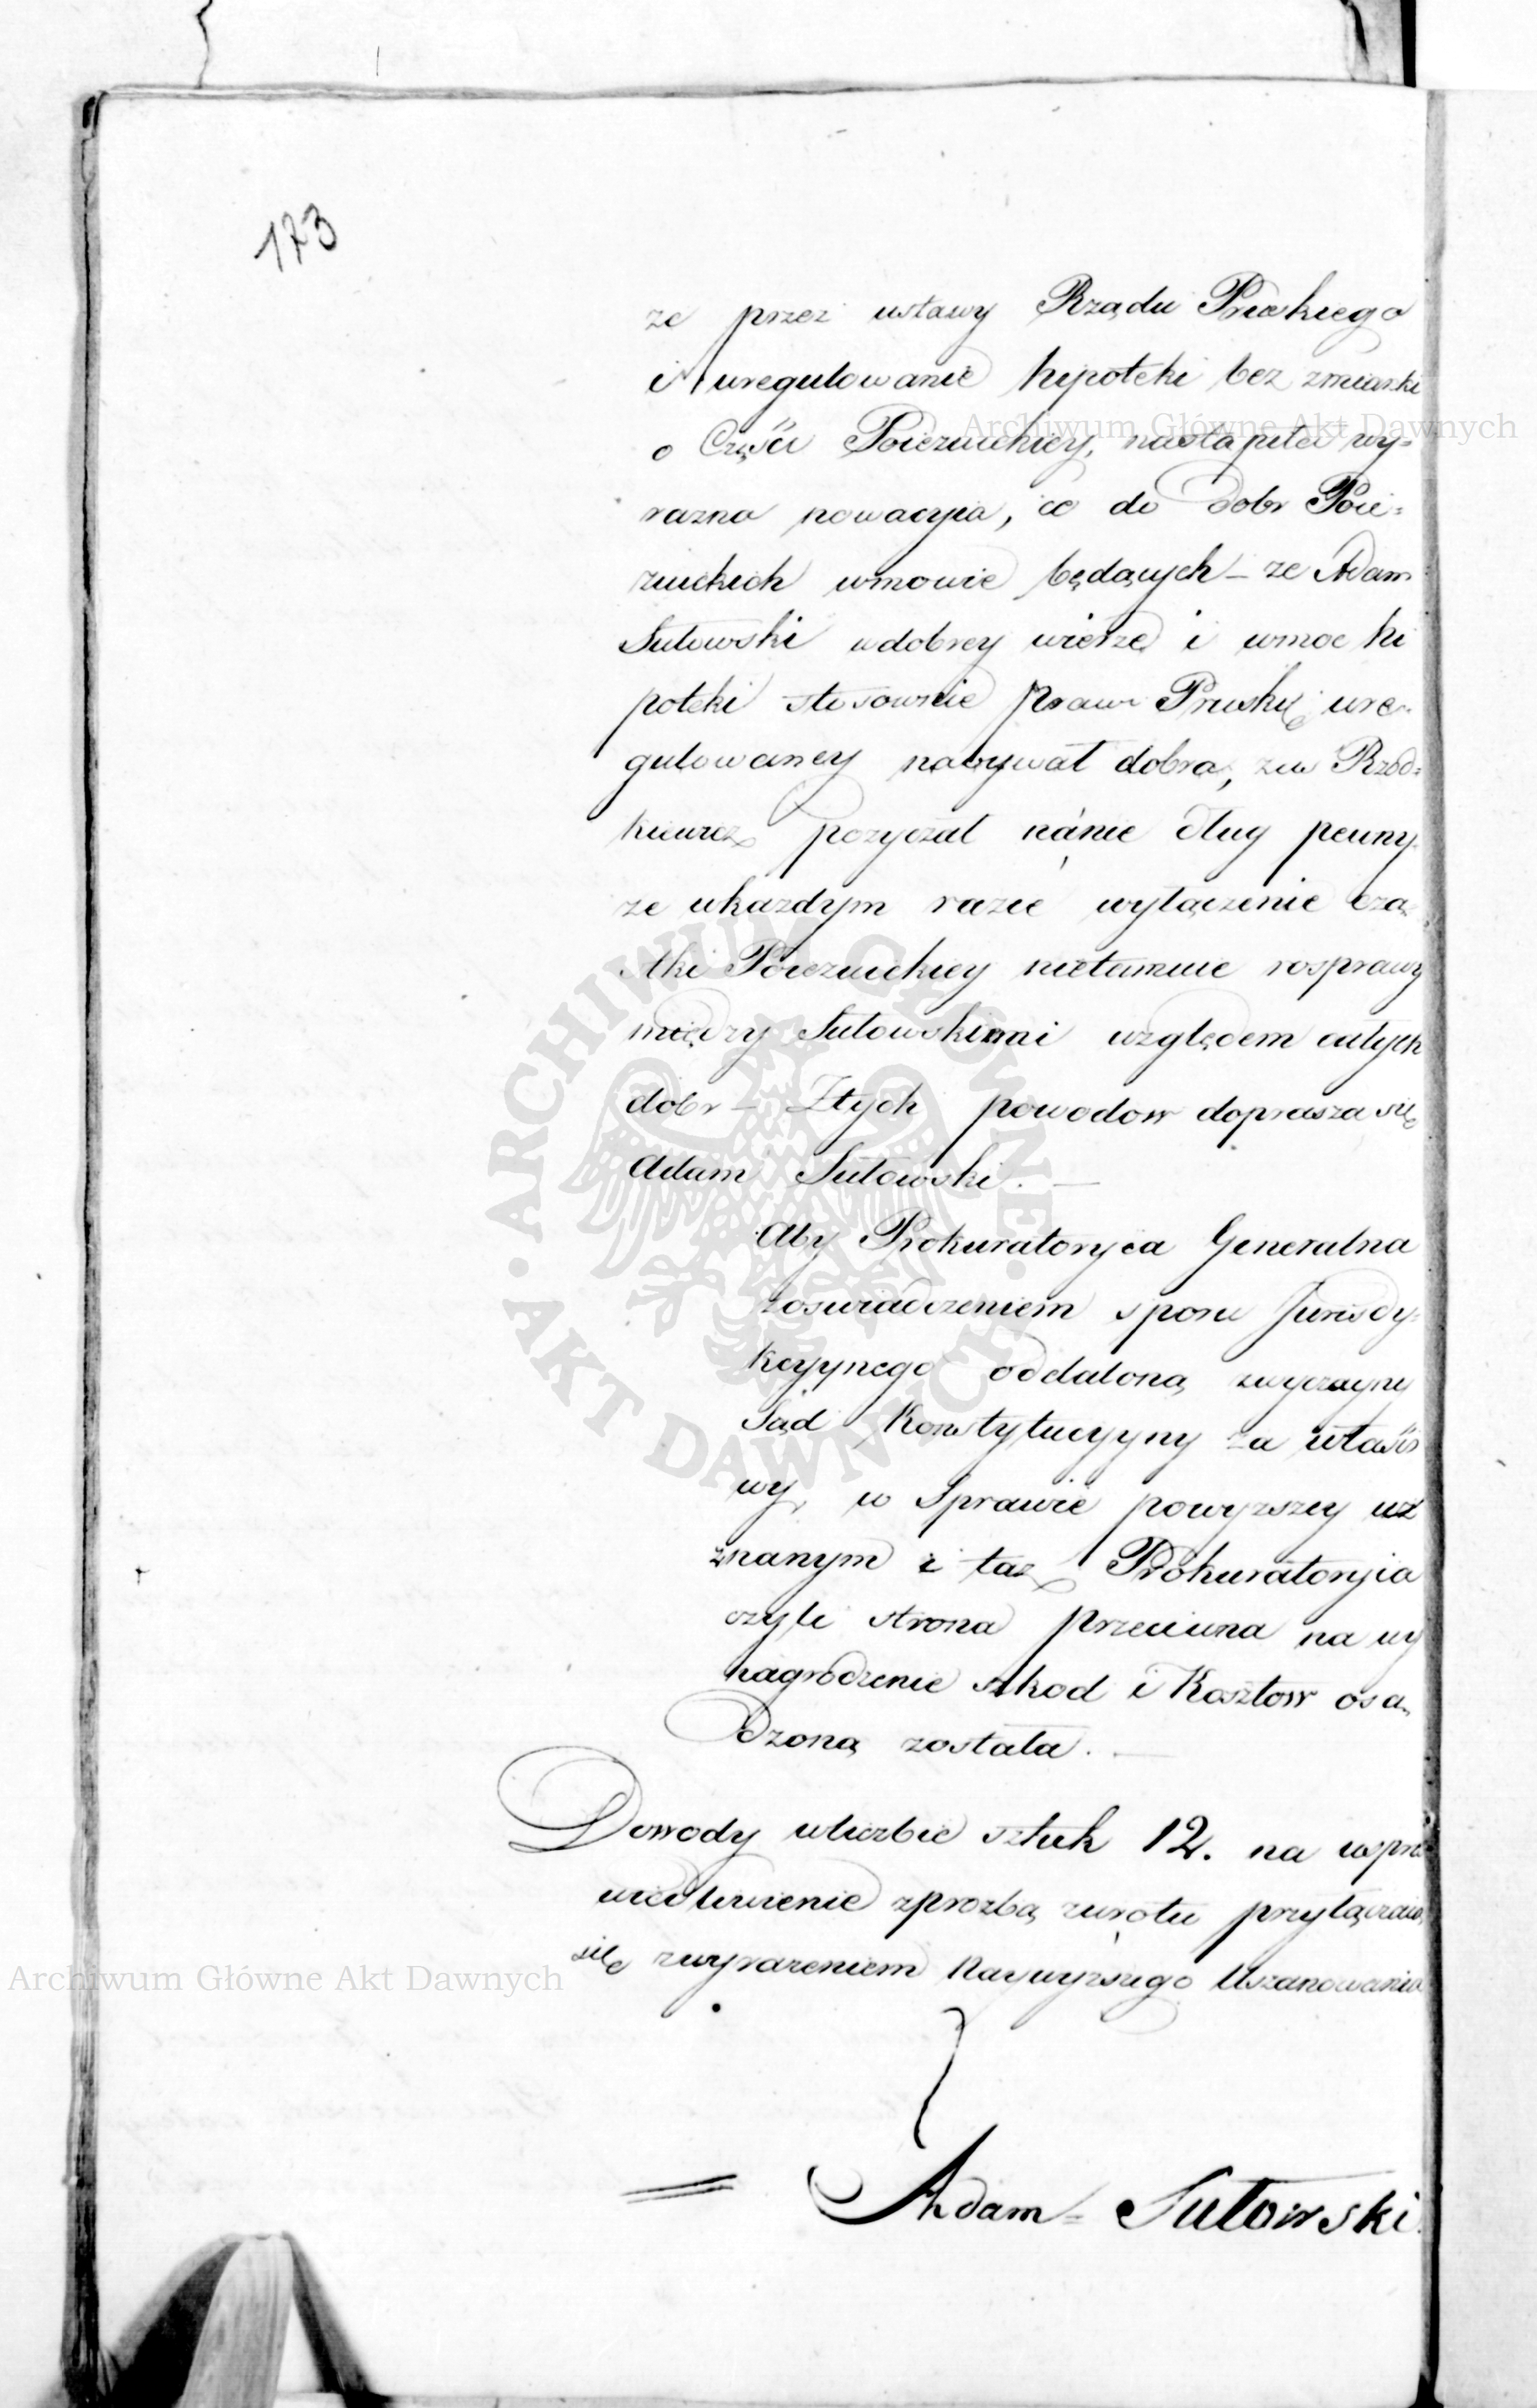 173
ze przez ustawy Rządu Pruskiego
i uregulowanie hipoteki bez zmianki
o Części Poiezuickiey, nastąpiła wy=
razna nowacyia, co do dobr Poie=
zuickich wmowie będących – ze Adam
Sutowski wdobrey wierze i wmoc hi
poteki stosownie Praw Pruskich ure=
gulowaney nabywał dobra, zas Rzod=
kiewicz pozyczał nánie dług pewny.
ze wkazdym razie wyłączenie czą
stki Poiezuickiey nietamuie rosprawy
między Sutowskiemi względem całych
dobr – Ztych powodow doprasza się
Adam Sutowski. —
Aby Prokuratoryia Generalna
zoswiadczeniem sporu Jurisdy=
kcyynego oddaloną zwyczayny
Sąd Konstytucyyny za właśi
wy, w Sprawie powyzszey uz
znanym i taz Prokuratoryia
czyli strona przeciwna na wy
nagrodzenie szkod i Kosztow osą
dzoną została. —
Dowody wliczbie sztuk 12. na uspra
wiedliwienie zprozbą zwrotu przyłączaią
się zwyrazeniem Naywyższego Uszanowania
Adam = Sutowski.
Archiwum Główne Akt Dawnych
Archiwum Główne Akt Dawnych
ARCHIWUM GŁÓWNE • AKT DAWNYCH •